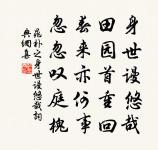 身世谩悠哉
田园首重回
春来亦何事
忽忽叹庭槐
晁补之身世谩悠哉词
典网喜